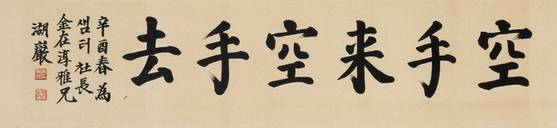 空手来空手去
辛酉春為
샘터社長
金在淳雅兄
湖巖